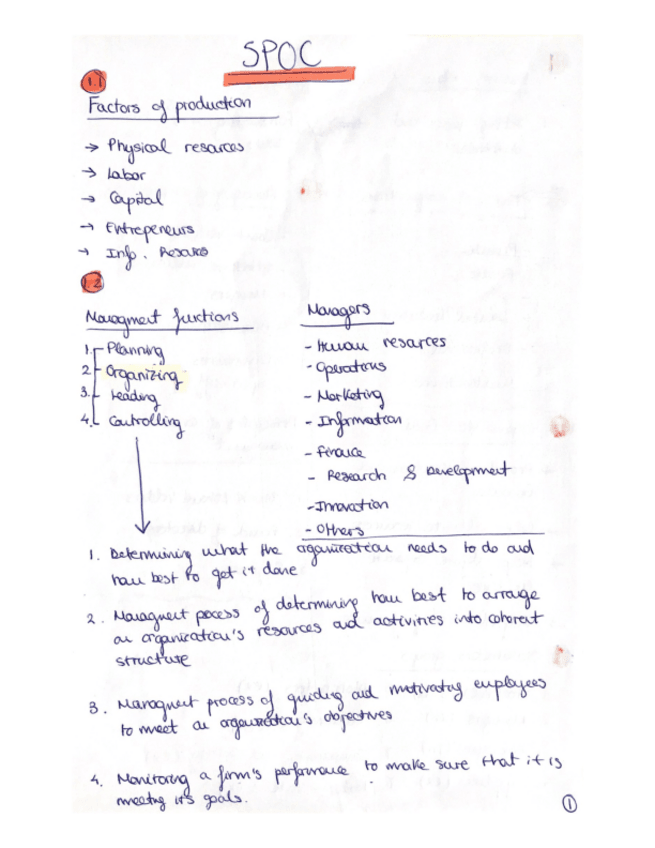 SPOC
1.1
Factors of production
→ Physical resources
→ Labor
→ Capital
→ Entrepeneurs
→ Info. Resources
1.2
Managment functions
1. Planning
2. Organizing
3. Leading
4. Controlling
Managers
- Human resources
- Operations
- Marketing
- Information
- Finance
- Research & Development
- Innovation
- Others
1. Determining what the organization needs to do and
how best to get it done
2. Managment process of determining how best to arrange
an organization's resources and activities into coherent
structure
3. Managment process of guiding and motivating employees
to meet an organization's objectives
4. Monitoring a firm's performance to make sure that it is
meeting it's goals.
1